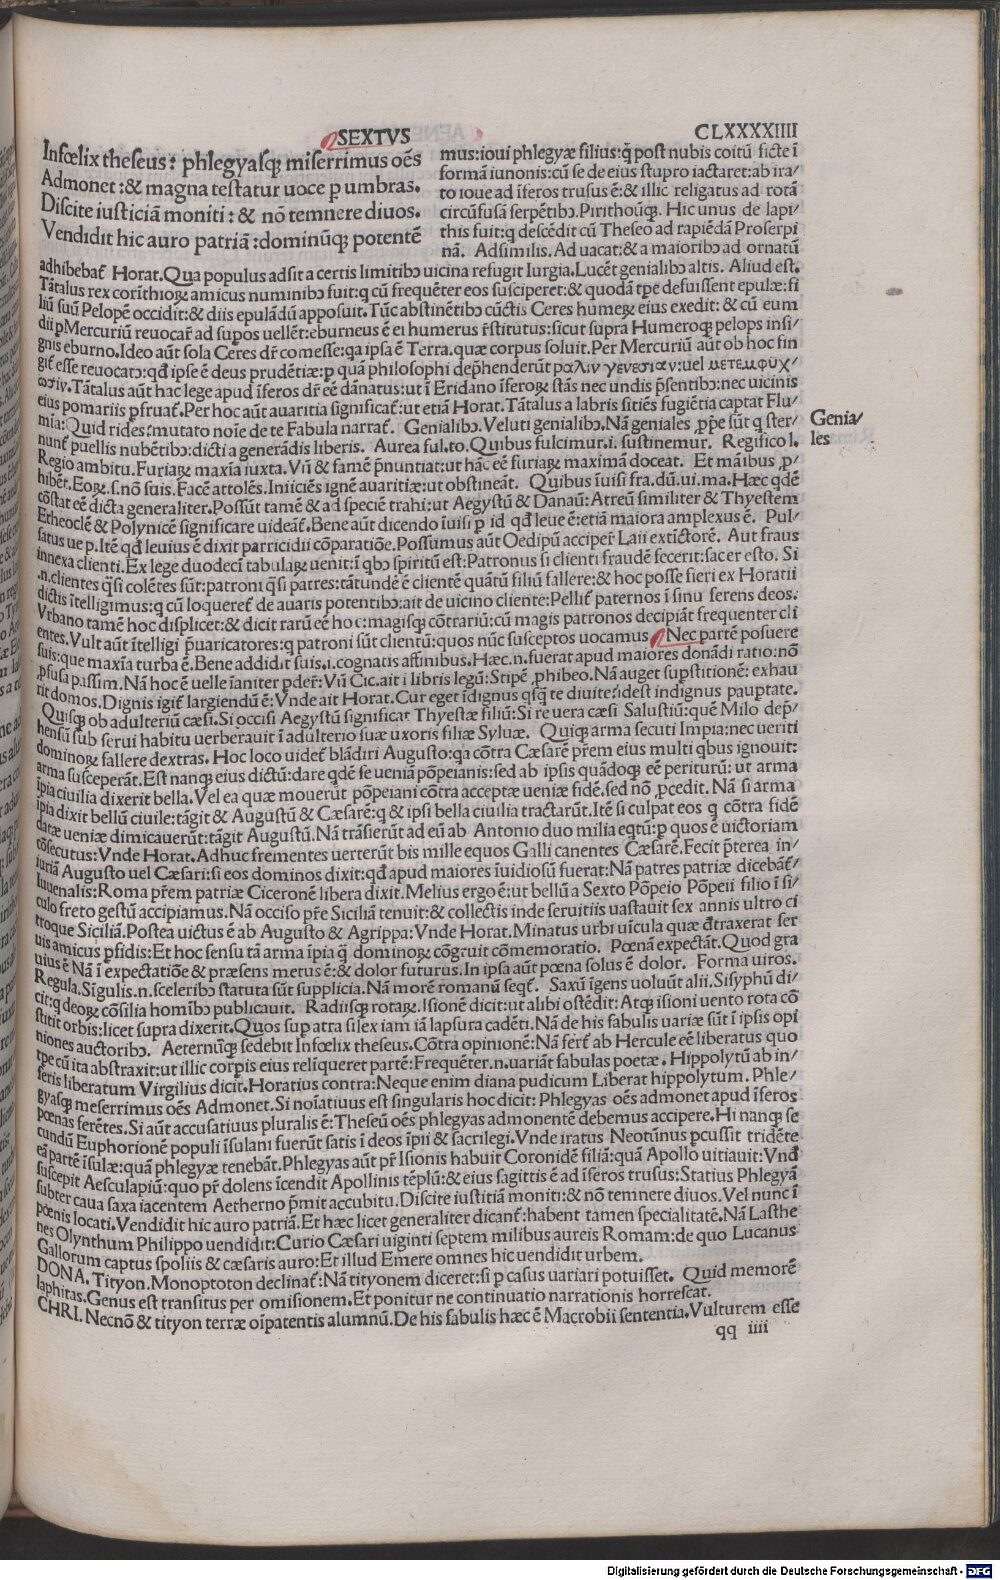 SEXTVS
CLXXXXIIII
Infœlix theseus: phlegyasqȝ miserrimus oẽs
Admonet:& magna testatur uoce p umbras.
Discite iusticiã moniti:& nõ temnere diuos.
Vendidit hic auro patriã:dominũqȝ potentẽ
mus:ioui phlegyæ filius:q̃ post nubis coitũ ficte ĩ
formã iunonis:cũ se de eius stupro iactaret:ab ira/
to ioue ad ĩferos trusus ẽ:& illic religatus ad rotã
circũfusã serpẽtibꝰ. Pirithoũqȝ. Hic unus de lapi/
this fuit:q descẽdit cũ Theseo ad rapiẽdã Proserpi
nã. Adsimilis. Ad uacat:& a maioribꝰ ad ornatũ
adhibebat̃ Horat.Qua populus adsit a certis limitibꝰ uicina refugit Iurgia.Lucẽt genialibꝰ altis. Aliud est.
Tãtalus rex corĩthioꝝ amicus numinibꝰ fuit:q cũ frequẽter eos susciperet:& quodã tp̃e defuissent epulæ:fi
liũ suũ Pelopẽ occidit:& diis epulãdũ apposuit.Tũc abstinẽtibꝰ cũctis Ceres humeꝝ eius exedit: & cũ eum
dii p Mercuriũ reuocar̃ ad supos uellẽt:eburneus ẽ ei humerus r̃stitutus:sicut supra Humeroqȝ pelops insi/
gnis eburno.Ideo aũt sola Ceres dr̃ comesse:qa ipsa ẽ Terra.quæ corpus soluit.Per Mercuriũ aũt ob hoc fin
git̃ esse reuocatꝰ:qđ ipse ẽ deus prudẽtiæ:p quã philosophi dep̃henderũt παλιν γενεσιαν:uel μετεμψυχ/
ωσιν.Tãtalus aũt hac lege apud ĩferos dr̃ eẽ dãnatus:ut ĩ Eridano ĩferoꝝ stãs nec undis p̃sentibꝰ:nec uicinis
eius pomariis pfruat̃.Per hoc aũt auaritia significat̃:ut etiã Horat.Tãtalus a labris sitiẽs fugiẽtia captat Flu/
mia:Quid rides:mutato noĩe de te Fabula narrat̃. Genialibꝰ.Veluti genialibꝰ.Nã geniales ꝓp̃e sũt q ster/
nunt̃ puellis nubẽtibꝰ:dicti a generãdis liberis. Aurea ful.to.Quibus fulcimur.i.sustinemur. Regifico l.
Regio ambitu.Furiaꝝ maxĩa iuxta.Vñ & famẽ p̃nuntiat:ut hãc eẽ furiaꝝ maximã doceat. Et mãibus ꝓ/
hibẽt.Eoꝝ.s.nõ suis.Facẽ attolẽs.Iniiciẽs ignẽ auaritiæ:ut obstineãt. Quibus ĩuisi fra.dũ.ui.ma.Hæc qdẽ
cõstat eẽ dicta generaliter.Possũt tamẽ & ad speciẽ trahi:ut Aegystũ & Danaũ:Atreũ similiter & Thyestem
Etheoclẽ & Polynicẽ significare uideat̃.Bene aũt dicendo ĩuisi p id qđ leue ẽ:etiã maiora amplexus ẽ. Pul/
satus ue p.Itẽ qđ leuius ẽ dixit parricidii cõparatiõe.Possumus aũt Oedipũ acciper̃ Laii extĩctorẽ. Aut fraus
innexa clienti.Ex lege duodecĩ tabulaꝝ uenit:ĩ qbꝰ sp̃iritũ est:Patronus si clienti fraudẽ fecerit:sacer esto. Si
.n.clientes qsi colẽtes sũt:patroni qsi patres:tãtundẽ ẽ clientẽ quãtũ filiũ fallere:& hoc posse fieri ex Horatii
dictis ĩtelligimus:q cũ loqueret̃ de auaris potentibꝰ:ait de uicino cliente:Pellit̃ paternos ĩ sinu ferens deos.
Vrbano tamẽ hoc displicet:& dicit rarũ eẽ hoc:magisqȝ cõtrariũ:cũ magis patronos decipiãt frequenter cli
entes.Vult aũt ĩtelligi p̃uaricatores:q patroni sũt clientũ:quos nũc susceptos uocamus Nec partẽ posuere
suis:que maxĩa turba ẽ.Bene addidit suis.i.cognatis affinibus.Hæc.n.fuerat apud maiores donãdi ratio:nõ
ꝓfusa passim.Nã hoc ẽ uelle ĩaniter pder̃:Vñ Cic.ait ĩ libris legũ:Stipẽ ꝓhibeo.Nã auget supstitionẽ: exhau
rit domos.Dignis igit̃ largiendũ ẽ:Vnde ait Horat.Cur eget ĩdignus qsqȝ te diuite?idest indignus paupertate.
Quisqȝ ob adulteriũ cæsi.Si occisi Aegystũ significar̃ Thyestæ filiũ:Si re uera cæsi Salustiũ:quẽ Milo dep̃/
hensũ sub serui habitu uerberauit ĩ adulterio suæ uxoris filiæ Syluæ. Quiqȝ arma secuti Impia:nec ueriti
dominoꝝ fallere dextras. Hoc loco uidet̃ blãdiri Augusto:qa cõtra Cæsarẽ pr̃em eius multi qbus ignouit:
arma susceperãt.Est nanqȝ eius dictũ:dare qdẽ se ueniã põpeianis:sed ab ipsis quãdoqȝ eẽ periturũ: ut arma
ĩpia ciuilia dixerit bella.Vel ea quæ mouerũt põpeiani cõtra acceptæ ueniæ fidẽ.sed nõ ꝓcedit. Nã si arma
ĩpia dixit bellũ ciuile:tãgit & Augustũ & Cæsarẽ:q & ipsi bella ciuilia tractarũt.Itẽ si culpat eos q cõtra fidẽ
datæ ueniæ dimicauerũt:tãgit Augustũ.Nã trãsierũt ad eũ ab Antonio duo milia eqtũ:p quos ẽ uictoriam
cõsecutus:Vnde Horat.Adhuc frementes uerterũt bis mille equos Galli canentes Cæsarẽ.Fecit p̃terea in/
iuriã Augusto uel Cæsari:si eos dominos dixit:qđ apud maiores ĩuidiosũ fuerat:Nã patres patriæ dicebãt̃/
Iuuenalis:Roma pr̃em patriæ Ciceronẽ libera dixit.Melius ergo ẽ:ut bellũ a Sexto Põpeio Põpeii filio ĩ si/
culo freto gestũ accipiamus.Nã occiso pr̃e Siciliã tenuit:& collectis inde seruitiis uastauit sex annis ultro ci
troque Siciliã.Postea uictus ẽ ab Augusto & Agrippa:Vnde Horat.Minatus urbi uĩcula quæ đtraxerat ser
uis amicus pfidis:Et hoc sensu tã arma ĩpia q̃ dominoꝝ cõgruit cõmemoratio. Pœnã expectãt.Quod gra
uius ẽ Nã ĩ expectatiõe & præsens metus ẽ:& dolor futurus.In ipsa aũt pœna solus ẽ dolor. Forma uiros.
Regula.Sĩgulis.n.sceleribꝰ statuta sũt supplicia.Nã morẽ romanũ seqt̃. Saxũ ĩgens uoluũt alii.Sisyphũ di/
cit:q deoꝝ cõsilia homĩbꝰ publicauit. Radiisqȝ rotaꝝ.Isionẽ dicit:ut alibi ostẽdit:Atqȝ isioni uento rota cõ
stitit orbis:licet supra dixerit.Quos sup atra silex iam iã lapsura cadẽti.Nã de his fabulis uariæ sũt ĩ ipsis opi
niones auctoribꝰ. Aeternũqȝ sedebit Infœlix theseus.Cõtra opinionẽ:Nã fert̃ ab Hercule eẽ liberatus quo
tp̃e cũ ita abstraxit:ut illic corpis eius reliqueret partẽ:Frequẽter.n.uariãt fabulas poetæ. Hippolytũ ab in/
feris liberatum Virgilius dicit.Horatius contra:Neque enim diana pudicum Liberat hippolytum. Phle/
gyasqȝ meserrimus oẽs Admonet.Si noĩatiuus est singularis hoc dicit: Phlegyas oẽs admonet apud ĩferos
pœnas ferẽtes.Si aũt accusatiuus pluralis ẽ:Theseũ oẽs phlegyas admonentẽ debemus accipere.Hi nanqȝ se
cundũ Euphorionẽ populi ĩsulani fuerũt satis ĩ deos ĩpii & sacrilegi.Vnde iratus Neptũnus pcussit tridẽte
eã partẽ ĩsulæ:quã phlegyæ tenebãt.Phlegyas aũt pr̃ Isionis habuit Coronidẽ filiã:quã Apollo uitiauit:Vnđ
suscepit Aesculapiũ:quo pr̃ dolens ĩcendit Apollinis tẽplũ:& eius sagittis ẽ ad ĩferos trusus:Statius Phlegyã
subter caua saxa iacentem Aetherno p̃mit accubitu.Discite iustitiã moniti:& nõ temnere diuos.Vel nunc ĩ
pœnis locati.Vendidit hic auro patriã.Et hæc licet generaliter dicant̃:habent tamen specialitatẽ.Nã Lasthe
nes Olynthum Philippo uendidit:Curio Cæsari uiginti septem milibus aureis Romam:de quo Lucanus
Gallorum captus spoliis & cæsaris auro:Et illud Emere omnes hic uendidit urbem.
DONA. Tityon.Monoptoton declinat̃:Nã tityonem diceret:si p casus uariari potuisset. Quid memorẽ
laphitas.Genus est transitus per omisionem.Et ponitur ne continuatio narrationis horrescat.
CHRI. Necnõ & tityon terræ oĩpatentis alumnũ.De his fabulis hæc ẽ Macrobii sententia.Vulturem esse
Genia/
les
qq iiii
Digitalisierung gefördert durch die Deutsche Forschungsgemeinschaft - DFG